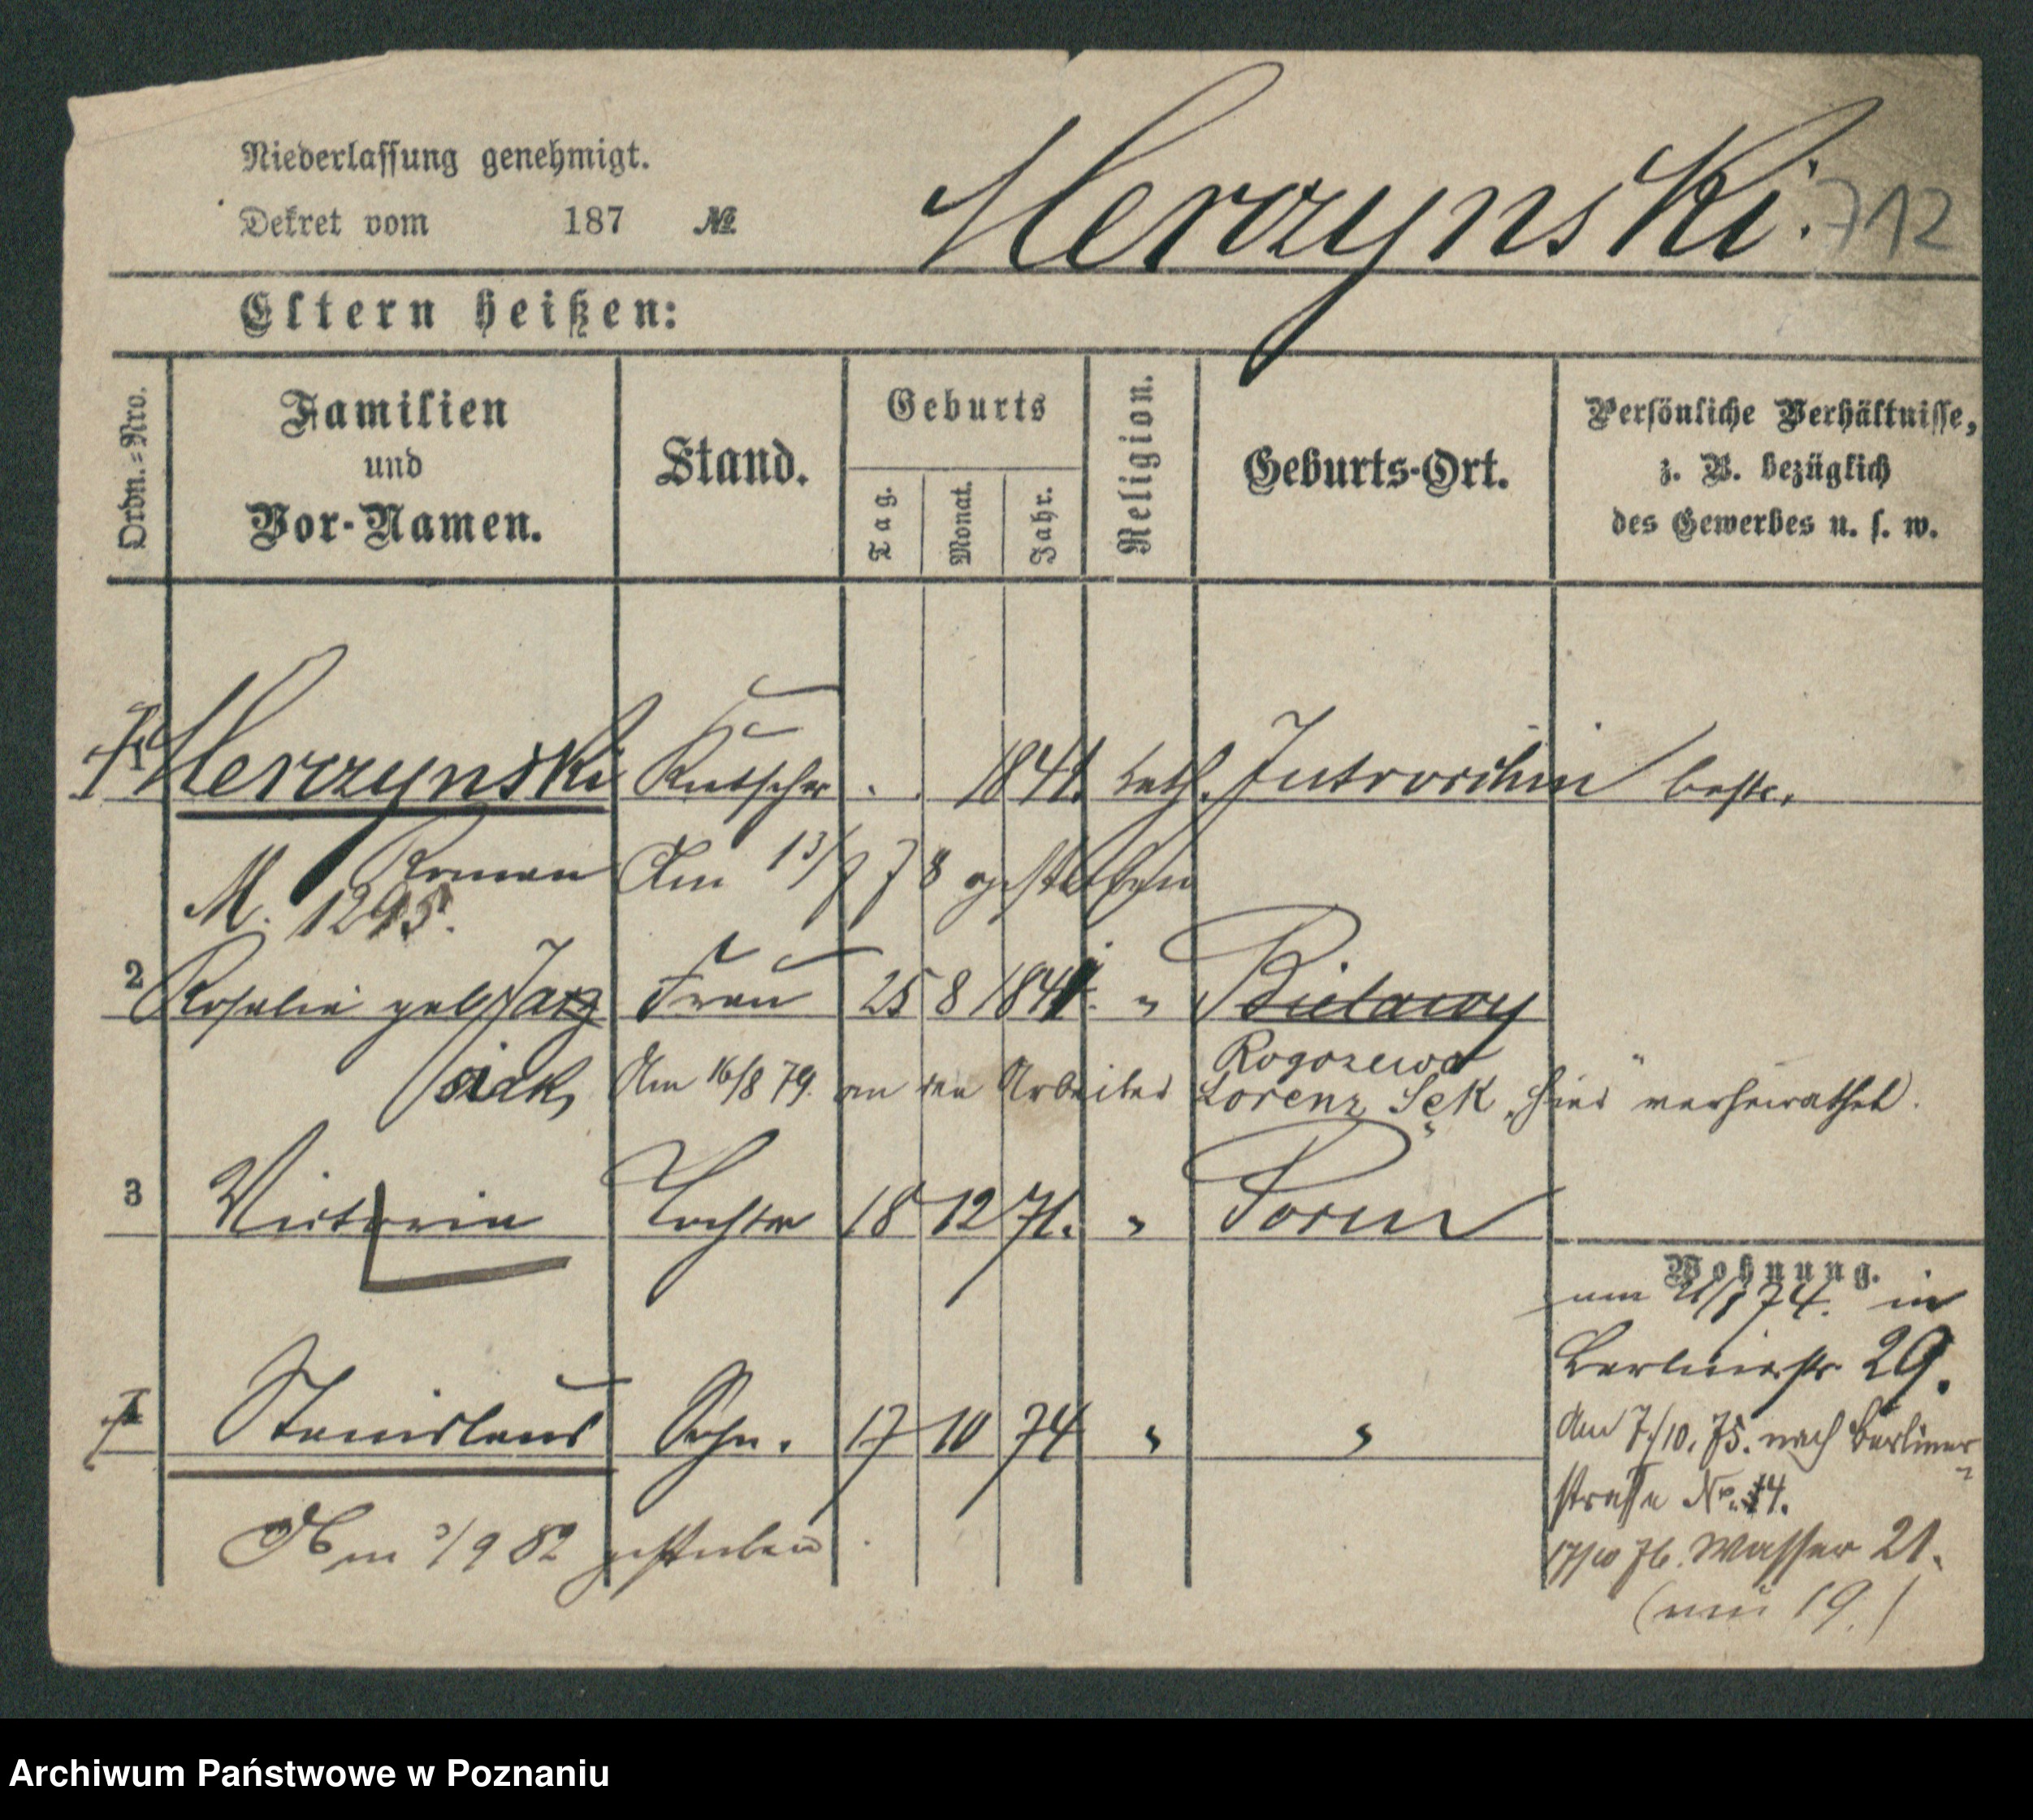 Niederlassung genehmigt.
Dekret vom 187 №
Merczynski. 712
Eltern heißen:
Ordn.-Nro.
Familien
und
Vor-Namen.
Stand.
Geburts
Tag. Monat. Jahr.
Religion.
Geburts-Ort.
Persönliche Verhältnisse,
z. B. bezüglich
des Gewerbes u. s. w.
Merczynski Kutscher 1841. kath. Jutroschin
Roman Am 13/ 78 gestorben
M. 1295.
2 Rosalie geb. Frau 25 8 184 " Bielawy
Rogozewo
Am 16/8 79. an den Arbeiter Lorenz Sęk, hier verheirathet.
3 Victoria Tochter 18 12 71. " Posen
Wohnung.
74. in
Berlinerstr 29.
Stanislaus Sohn. 17 10 74 " "
Am 7./10. 75. nach Berliner-
straße No. 14.
Am /9 82 gestorben
17/10 76. Wasser 21.
(neu 19.)
Archiwum Państwowe w Poznaniu